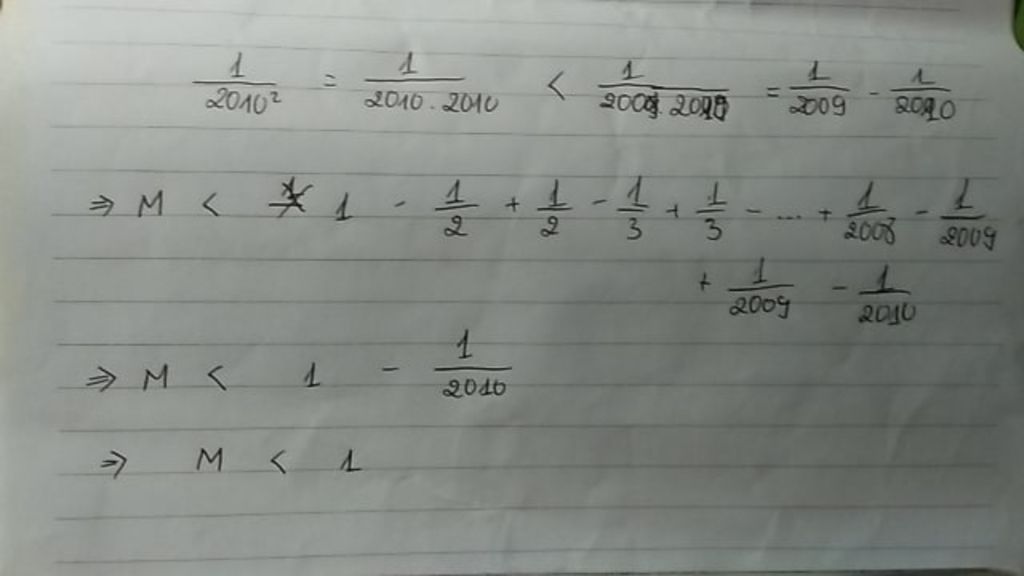 1/2010² = 1/2010.2010 < 1/2009.2010 = 1/2009 - 1/2010
⇒ M < 1 - 1/2 + 1/2 - 1/3 + 1/3 - ... + 1/2008 - 1/2009
+ 1/2009 - 1/2010
⇒ M < 1 - 1/2010
⇒ M < 1